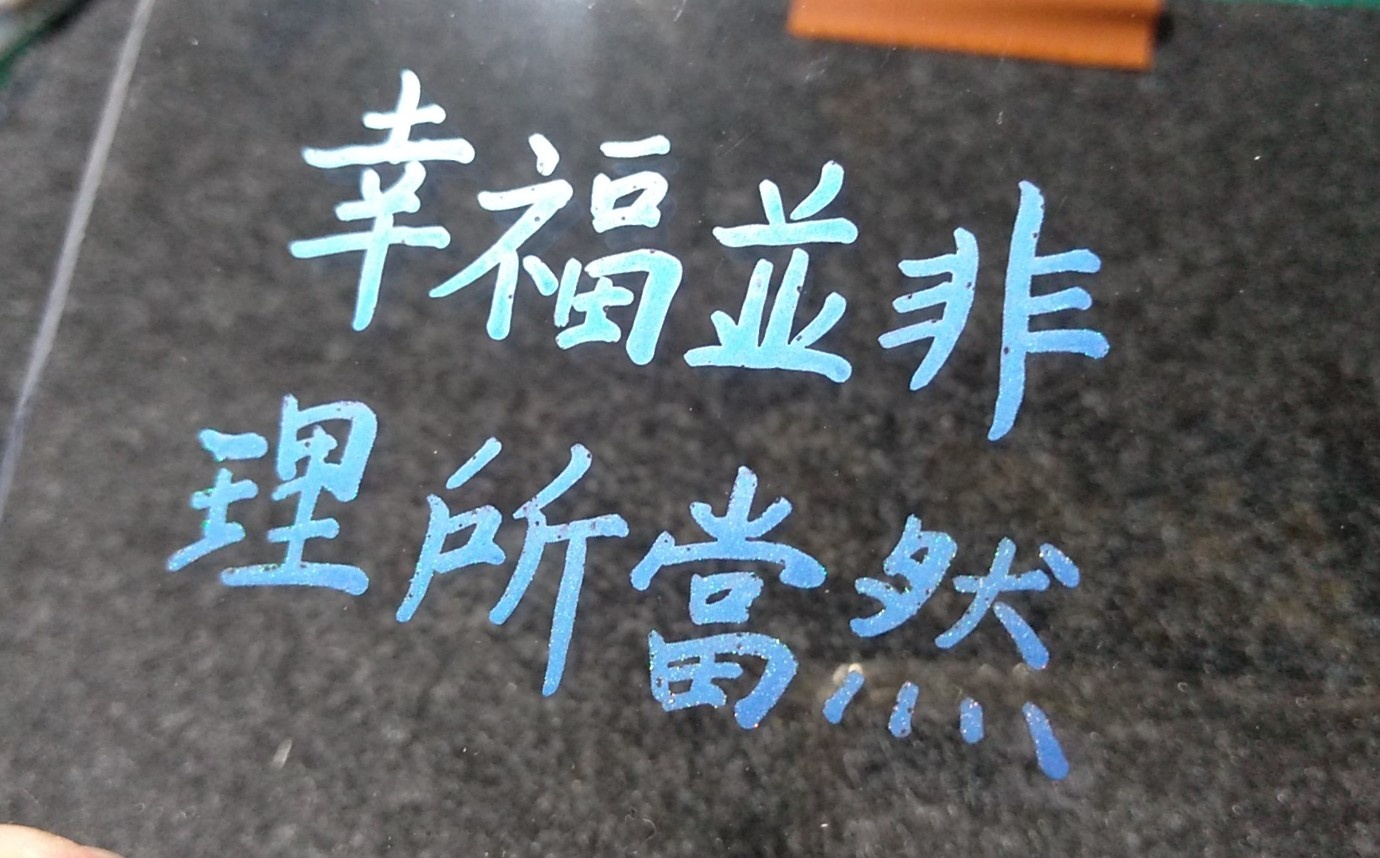 幸福並非
理所當然